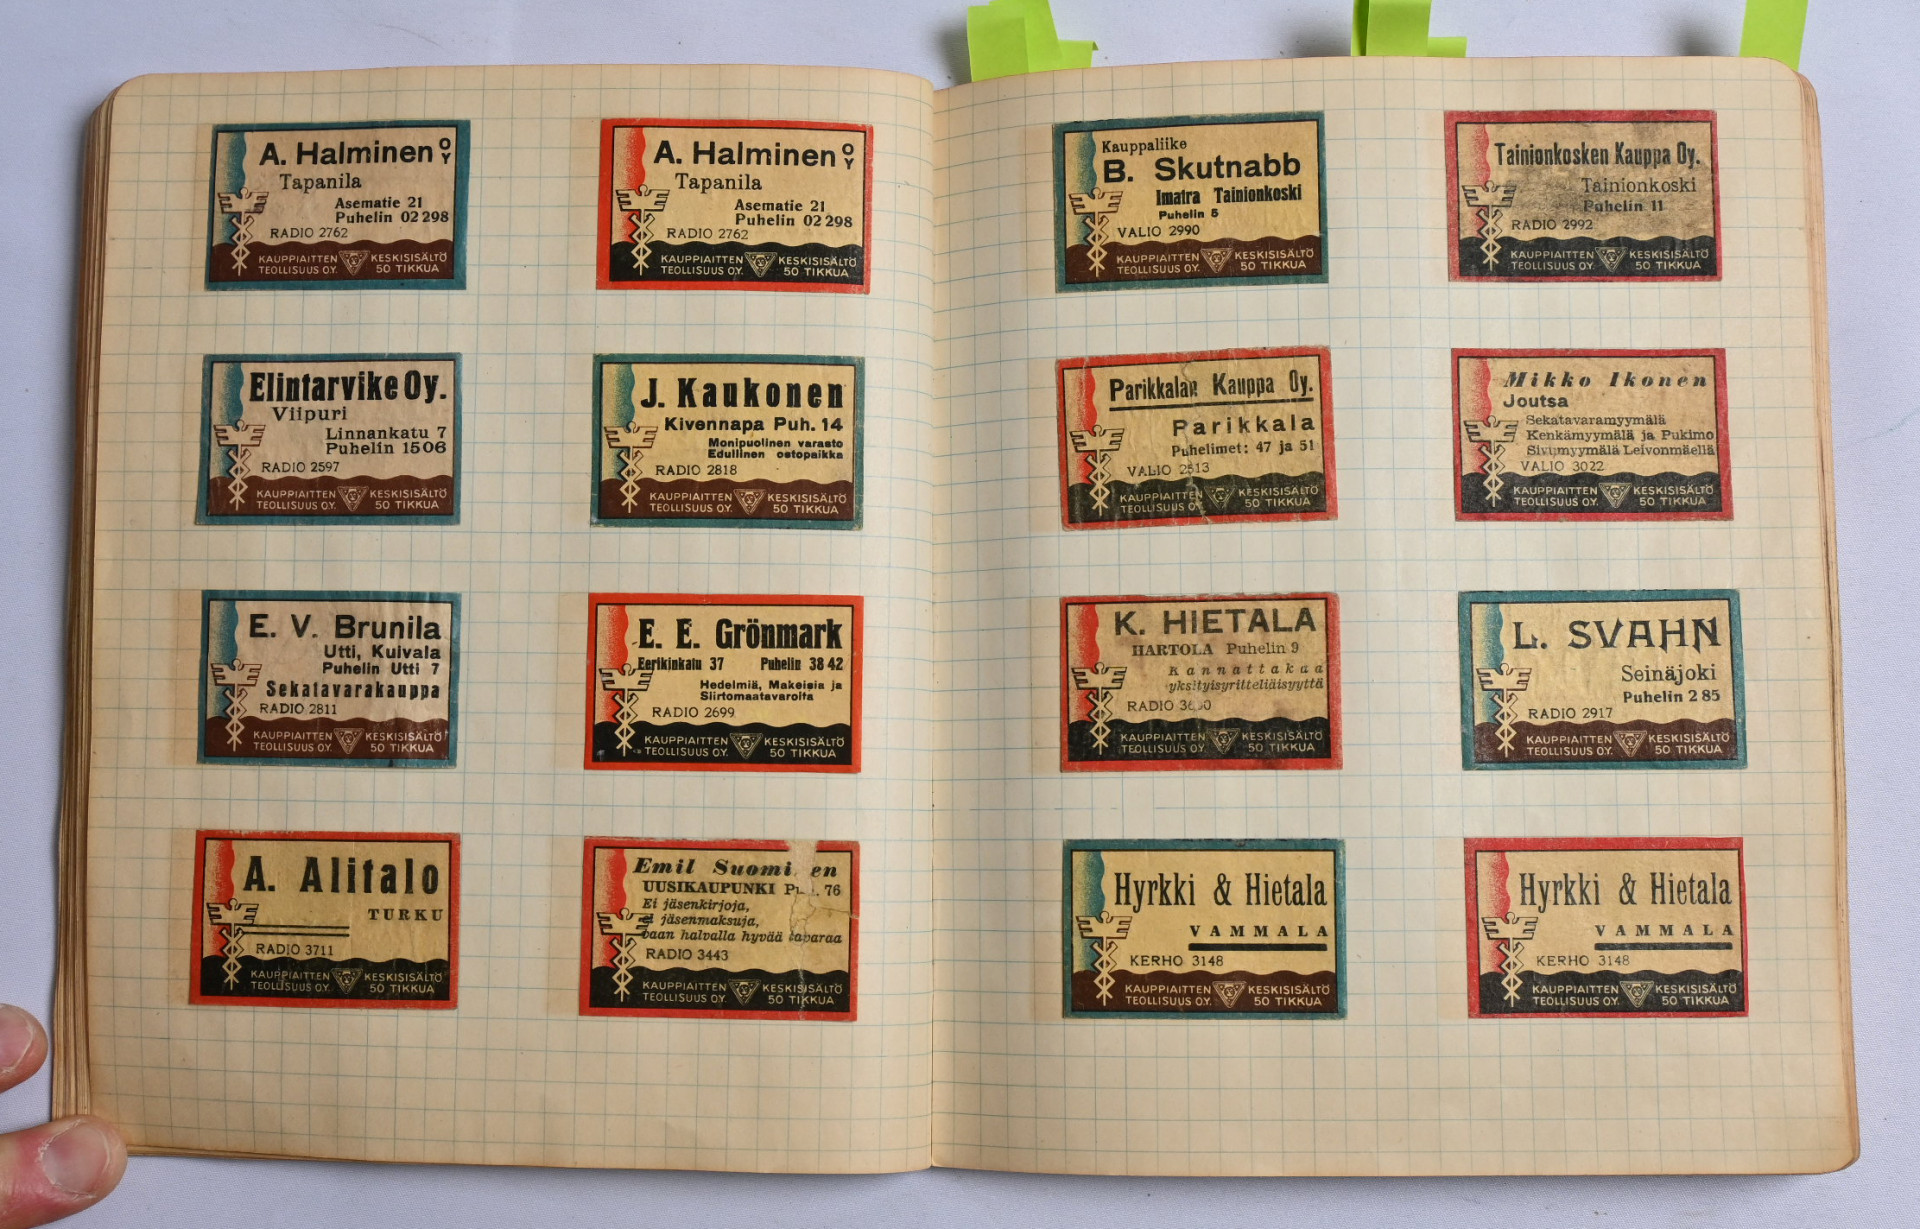 A. Halminen OY
Tapanila
Asematie 21
Puhelin 02 298
RADIO 2762
KAUPPIAITTEN TEOLLISUUS OY.
KESKISISÄLTÖ 50 TIKKUA
A. Halminen OY
Tapanila
Asematie 21
Puhelin 02 298
RADIO 2762
KAUPPIAITTEN TEOLLISUUS OY.
KESKISISÄLTÖ 50 TIKKUA
Elintarvike Oy.
Viipuri
Linnankatu 7
Puhelin 1506
RADIO 2597
KAUPPIAITTEN TEOLLISUUS OY.
KESKISISÄLTÖ 50 TIKKUA
J. Kaukonen
Kivennapa Puh. 14
Monipuolinen varasto
Edullinen ostopaikka
RADIO 2818
KAUPPIAITTEN TEOLLISUUS OY.
KESKISISÄLTÖ 50 TIKKUA
E. V. Brunila
Utti, Kuivala
Puhelin Utti 7
Sekatavarakauppa
RADIO 2811
KAUPPIAITTEN TEOLLISUUS OY.
KESKISISÄLTÖ 50 TIKKUA
E. E. Grönmark
Eerikinkatu 37 Puhelin 38 42
Hedelmiä, Makeisia ja
Siirtomaatavaroita
RADIO 2699
KAUPPIAITTEN TEOLLISUUS OY.
KESKISISÄLTÖ 50 TIKKUA
A. Alitalo
TURKU
RADIO 3711
KAUPPIAITTEN TEOLLISUUS OY.
KESKISISÄLTÖ 50 TIKKUA
Emil Suomi en
UUSIKAUPUNKI 76
Ei jäsenkirjoja,
ei jäsenmaksuja,
vaan halvalla hyvää tavaraa
RADIO 3443
KAUPPIAITTEN TEOLLISUUS OY.
KESKISISÄLTÖ 50 TIKKUA
Kauppaliike
B. Skutnabb
Imatra Tainionkoski
Puhelin 5
VALIO 2990
KAUPPIAITTEN TEOLLISUUS OY.
KESKISISÄLTÖ 50 TIKKUA
Tainionkosken Kauppa Oy.
Tainionkoski
Puhelin 11
RADIO 2992
KAUPPIAITTEN TEOLLISUUS OY.
KESKISISÄLTÖ 50 TIKKUA
Parikkalan Kauppa Oy.
Parikkala
Puhelimet: 47 ja 51
VALIO
KAUPPIAITTEN TEOLLISUUS OY.
KESKISISÄLTÖ 50 TIKKUA
Mikko Ikonen
Joutsa
Sekatavaramyymälä
Kenkämyymälä ja Pukimo
Sivumyymälä Leivonmäellä
VALIO 3022
KAUPPIAITTEN TEOLLISUUS OY.
KESKISISÄLTÖ 50 TIKKUA
K. HIETALA
HARTOLA Puhelin 9
Kannattakaa
yksityisyritteliäisyyttä
RADIO
KAUPPIAITTEN TEOLLISUUS OY.
KESKISISÄLTÖ 50 TIKKUA
L. SVAHN
Seinäjoki
Puhelin 2 85
RADIO 2917
KAUPPIAITTEN TEOLLISUUS OY.
KESKISISÄLTÖ 50 TIKKUA
Hyrkki & Hietala
VAMMALA
KERHO 3148
KAUPPIAITTEN TEOLLISUUS OY.
KESKISISÄLTÖ 50 TIKKUA
Hyrkki & Hietala
VAMMALA
KERHO 3148
KAUPPIAITTEN TEOLLISUUS OY.
KESKISISÄLTÖ 50 TIKKUA